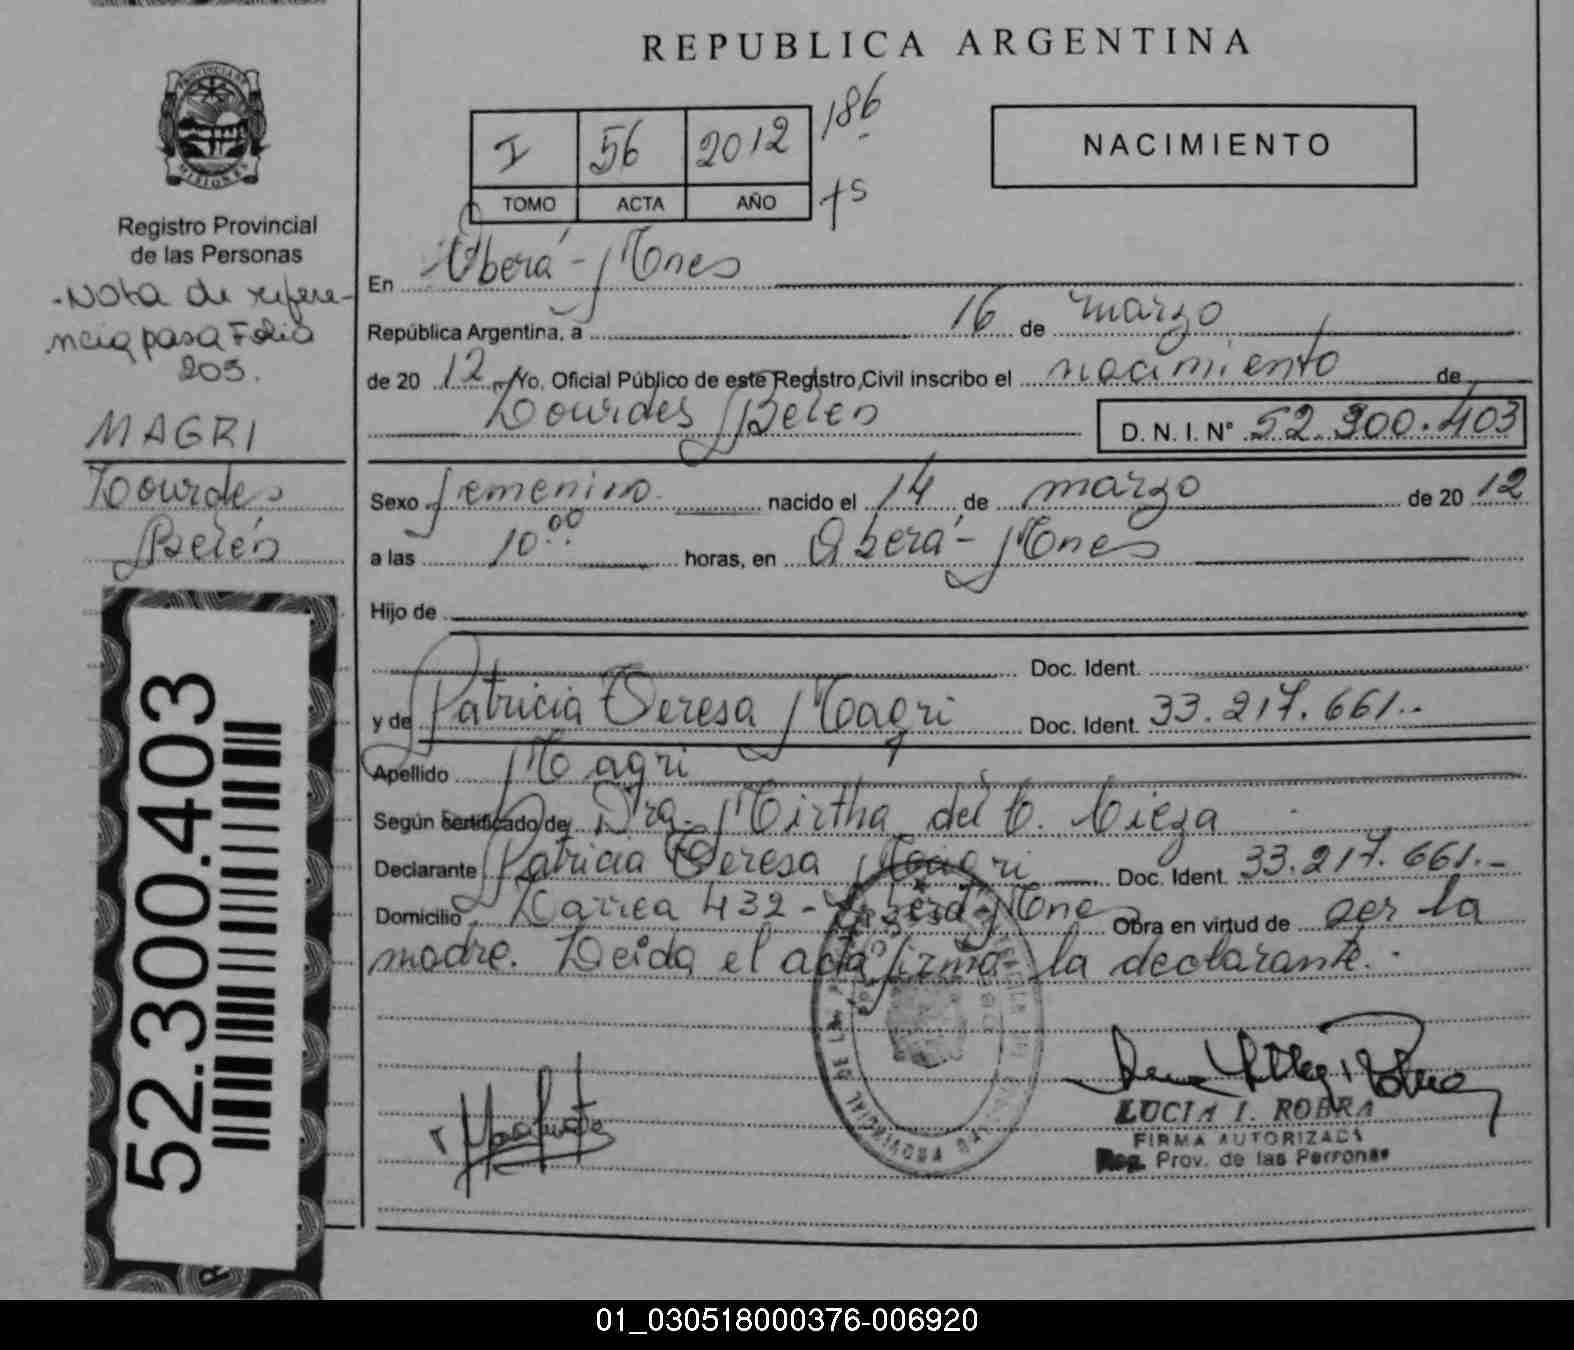 REPUBLICA ARGENTINA
PROVINCIA DE
MISIONES
Registro Provincial
de las Personas
I 56 2012 186
TOMO ACTA AÑO
NACIMIENTO
-Nota de refere-
ncia pasa Folio
205.
MAGRI
Lourdes
Belén
52.300.403
En Oberá - Mnes
República Argentina, a 16 de marzo
de 20 12 Yo, Oficial Público de este Registro Civil inscribo el nacimiento de
Lourdes Belén D. N. I. N° 52.300.403
Sexo femenino. nacido el 14 de marzo de 20 12
a las 10:00 horas, en Oberá - Mnes
Hijo de
Doc. Ident.
y de Patricia Teresa Magri Doc. Ident. 33.217.661.-
Apellido Magri
Según certificado de Dra. Mirtha del C. Cieza
Declarante Patricia Teresa Magri Doc. Ident. 33.217.661.-
Domicilio Larrea 432 - Oberá - Mnes Obra en virtud de ser la
madre. Leída el acta firma la declarante.-
LUCIA I. ROBRA
FIRMA AUTORIZADA
Reg. Prov. de las Personas
01_030518000376-006920